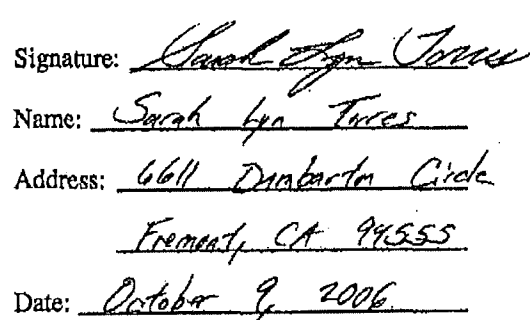 Signature: Sarah Lyn Torres
Name: Sarah Lyn Torres
Address: 6611 Dumbarton Circle
Fremont, CA 94555
Date: October 9, 2006